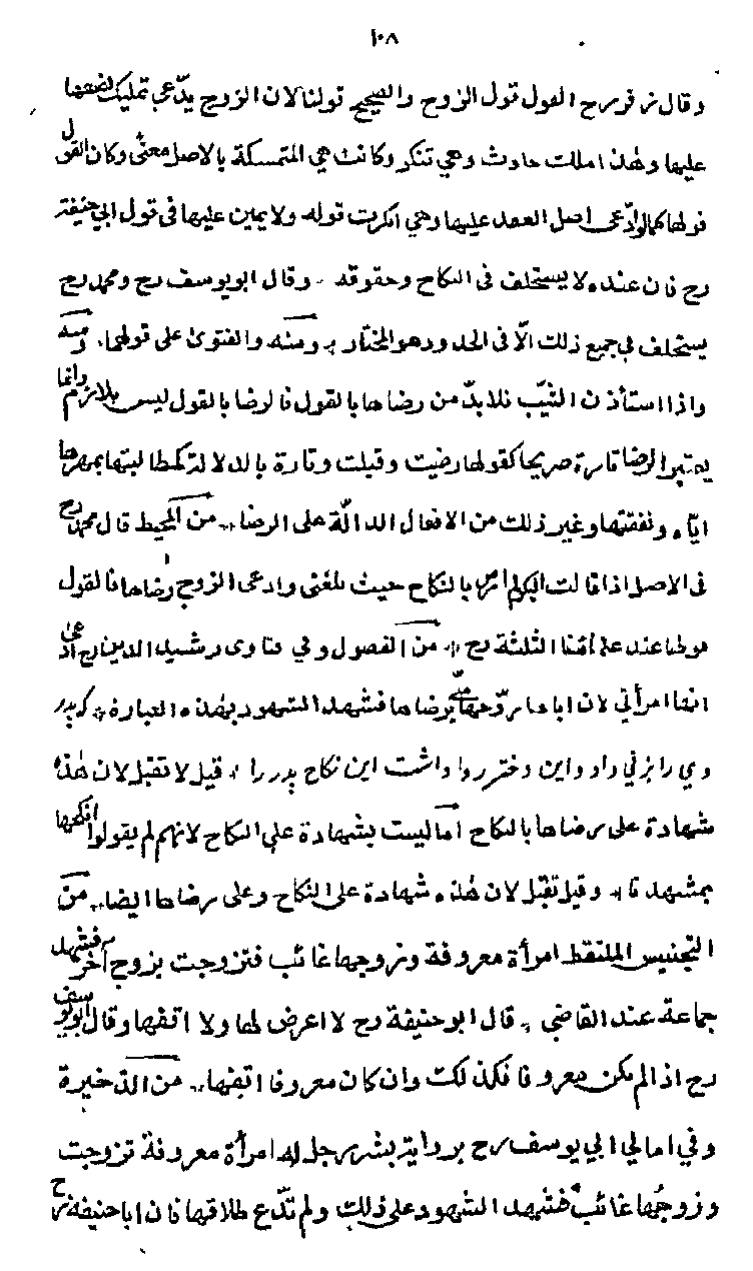 ١٠٨
وقال زفر رح القول قول الزوج والصحيح قولنا لان الزوج يدّعي تمليك بضعها
عليها وهذا املك حادث وهي تنكر وكانت هي المتمسكة بالاصل معنًى وكان القول
قولها كما لو ادّعى اصل العقد عليها وهي انكرت قوله ولا يمين عليها فى قول ابي حنيفة
رح فان عنده لا يستحلف فى النكاح وحقوقه وقال ابو يوسف رح ومحمد رح
يستحلف في جميع ذلك الّا فى الحدود وهو المختار ومنه والفتوى على قولهما ومنه
واذا استأذن الثيّب فلا بدّ من رضاها بالقول فالرضا بالقول ليس بلازم وانما
يعتبر الرضا تارة صريحا كقولها رضيت وقبلت وتارة بالدلالة كمطالبتها بمهرها
ايّاه ونفقتها وغير ذلك من الافعال الدالّة على الرضا من المحيط قال محمد رح
فى الاصل اذا قالت البكر لم ارض بالنكاح حيث بلغنى وادعى الزوج رضاها فالقول
قولها عند علمائنا الثلثة رح من الفصول وفي فتاوى رشيد الدين رح ادعى
انها امرأتي لان اباها زوّجها منّي برضاها فشهد الشهود بهذه العبارة كه پدر
وي را بزني داد واين دختر روا داشت اين نكاح پدر را قيل لا تقبل لان هذه
شهادة على رضاها بالنكاح اما ليست بشهادة على النكاح لانهم لم يقولوا انكحها
بمشهدنا وقيل تقبل لان هذه شهادة على النكاح وعلى رضاها ايضا من
التجنيس الملتقط امرأة معروفة وزوجها غائب فتزوجت بزوج آخر فشهد
جماعة عند القاضي قال ابو حنيفة رح لا اعرض لها ولا اقفها وقال ابو يوسف
رح اذا لم يكن معروفا فكذلك وان كان معروفا اقفها من الذخيرة
وفي امالي ابي يوسف رح برواية بشر رجل له امرأة معروفة تزوجت
وزوجُها غائب فشهد الشهود على ذلك ولم تدّع طلاقها فان ابا حنيفة رح